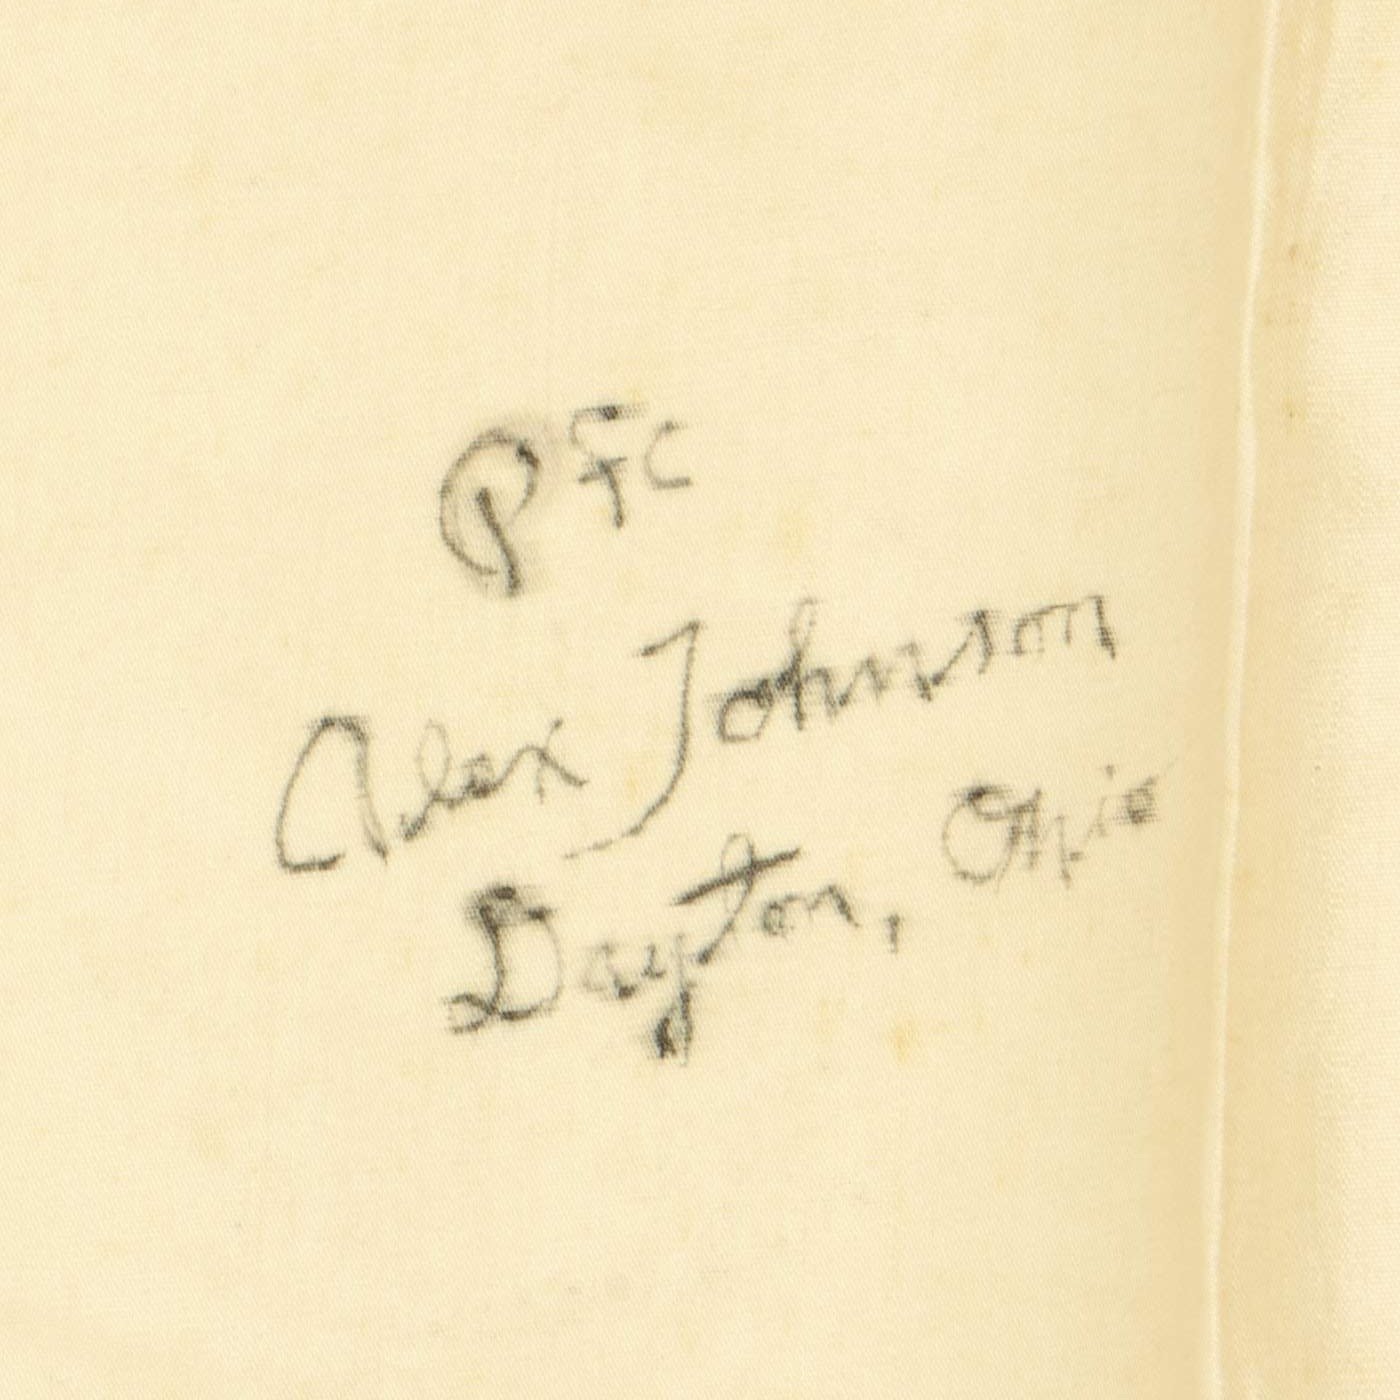 Pfc
Alex Johnson
Dayton, Ohio